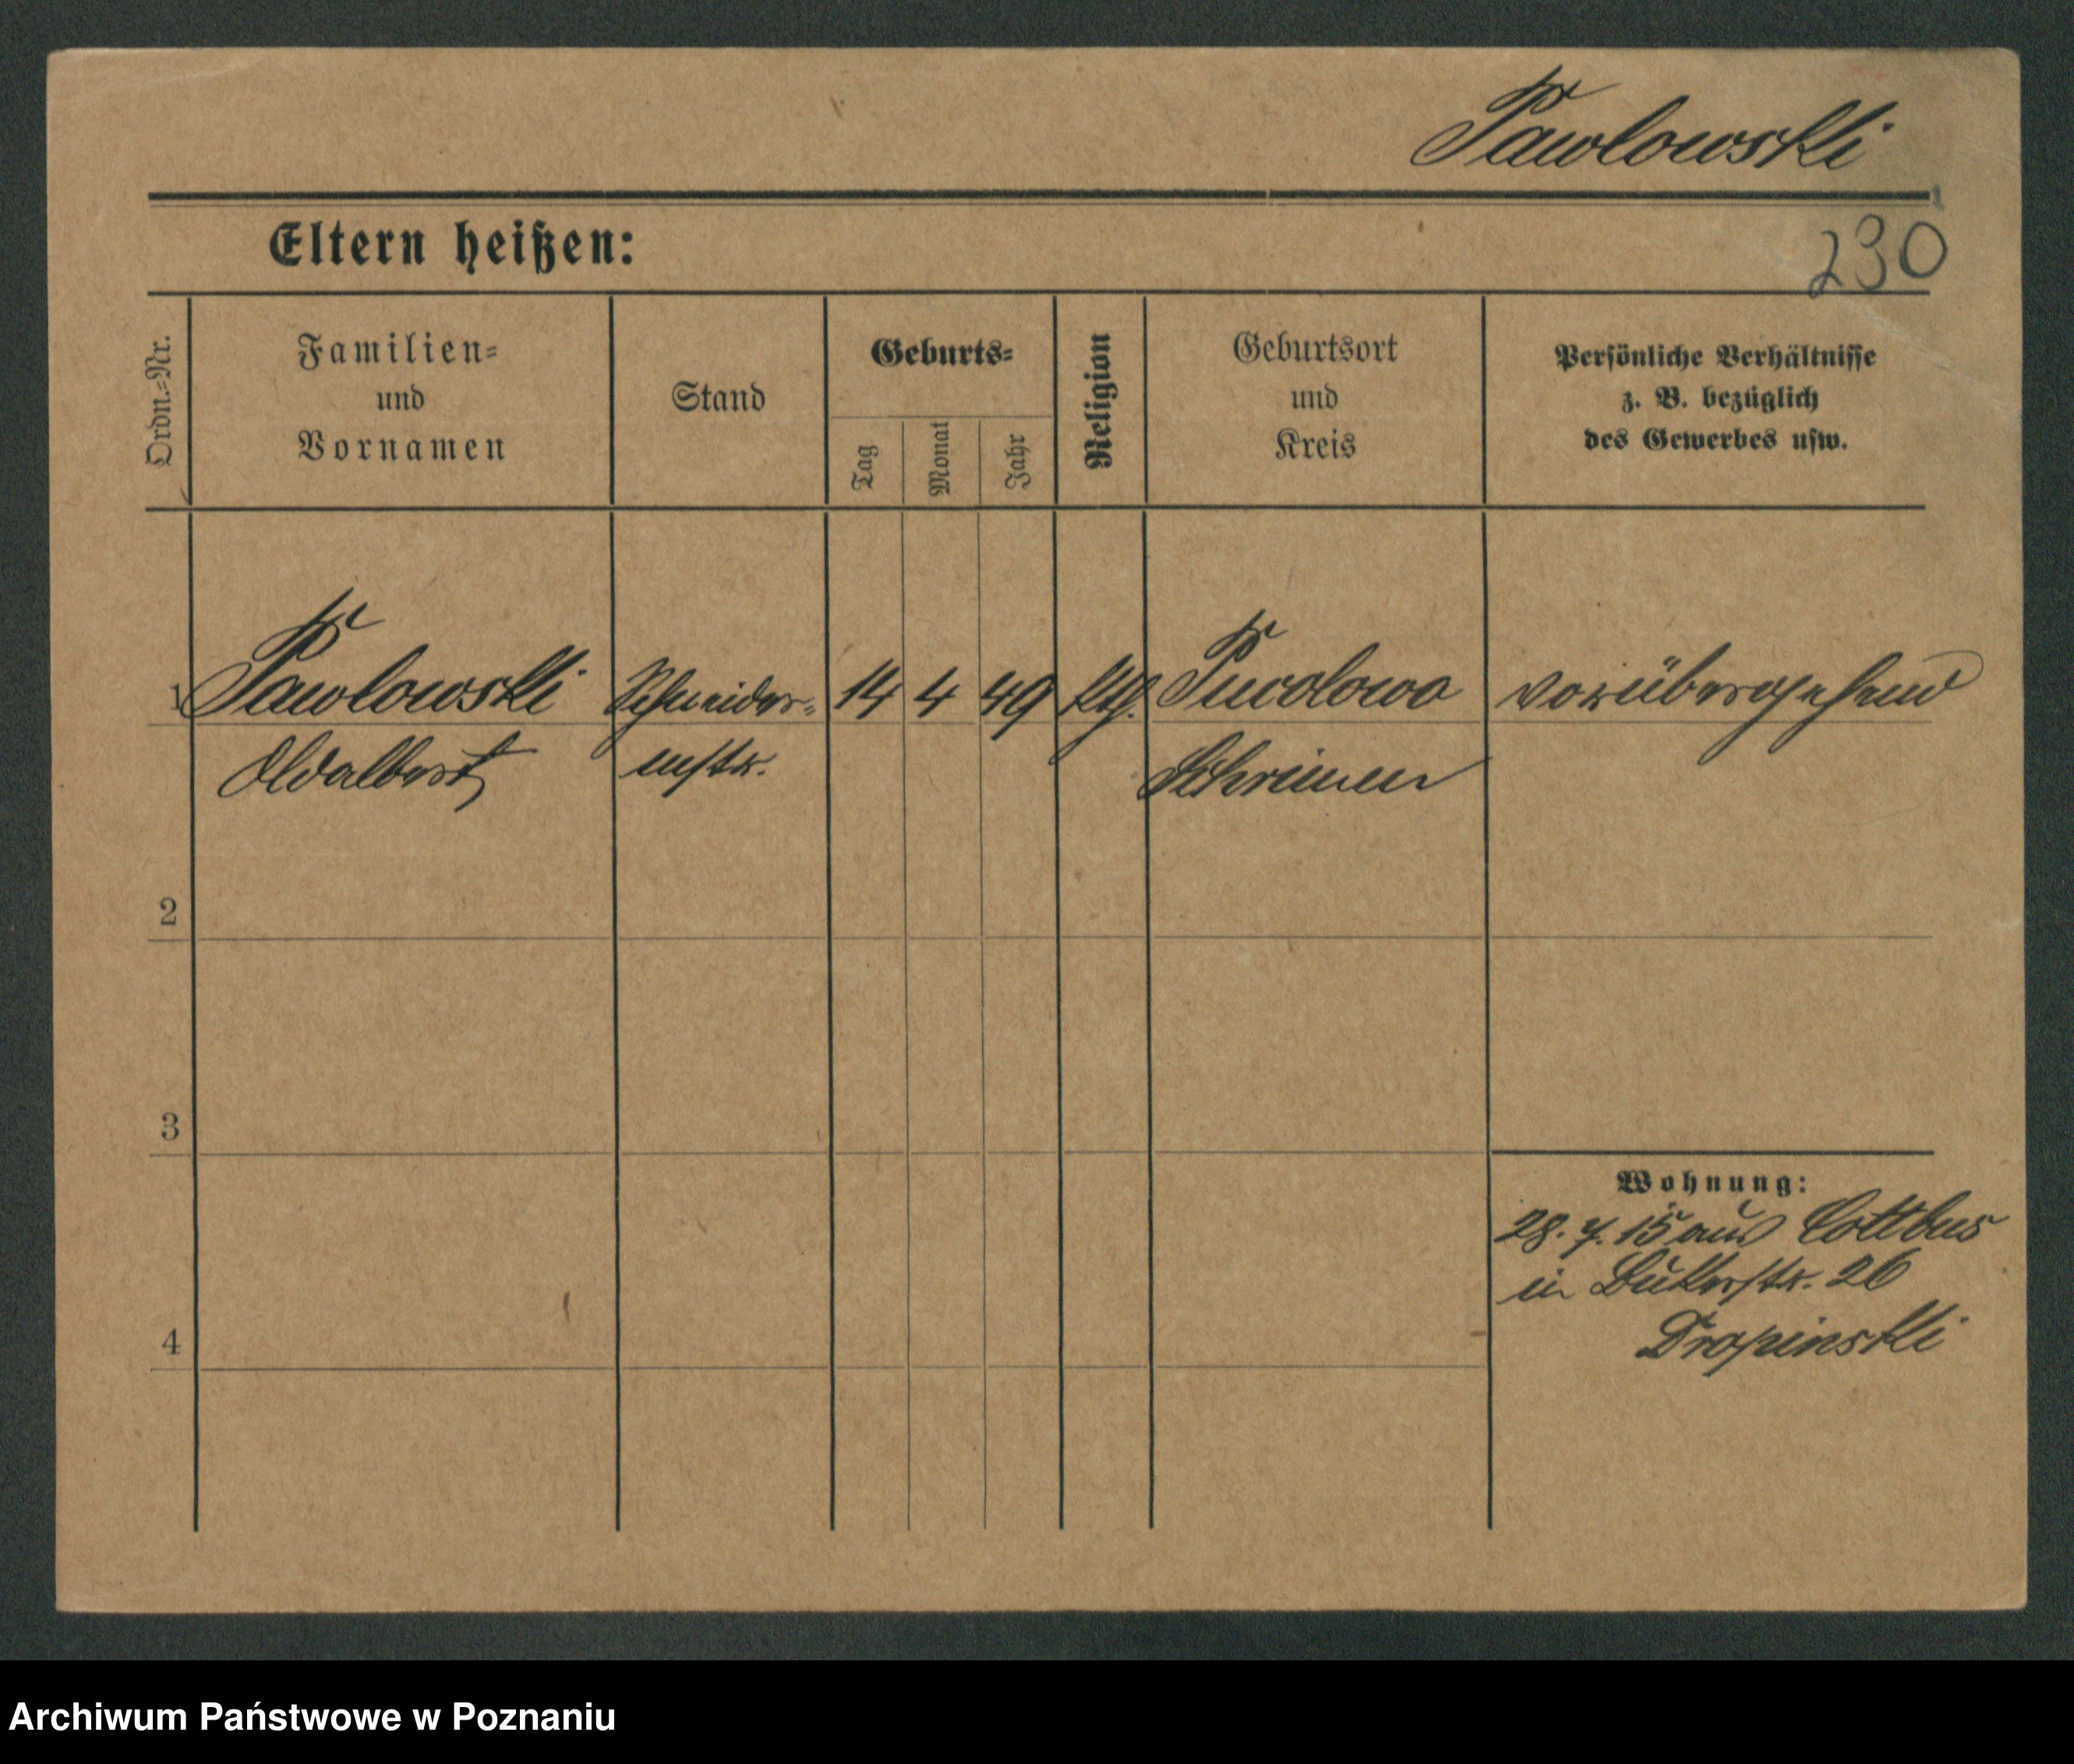 Pawlowski
Eltern heißen:
230
Ordn.-Nr.
Familien-
und
Vornamen
Stand
Geburts-
Tag
Monat
Jahr
Religion
Geburtsort
und
Kreis
Persönliche Verhältnisse
z. B. bezüglich
des Gewerbes usw.
1 Pawlowski Schneider- 14 4 49 kth. vorübergehend
mstr. Schrimm
2
3
Wohnung:
28. 7. 15 aus Cottbus
in 26
Dropinski
4
Archiwum Państwowe w Poznaniu